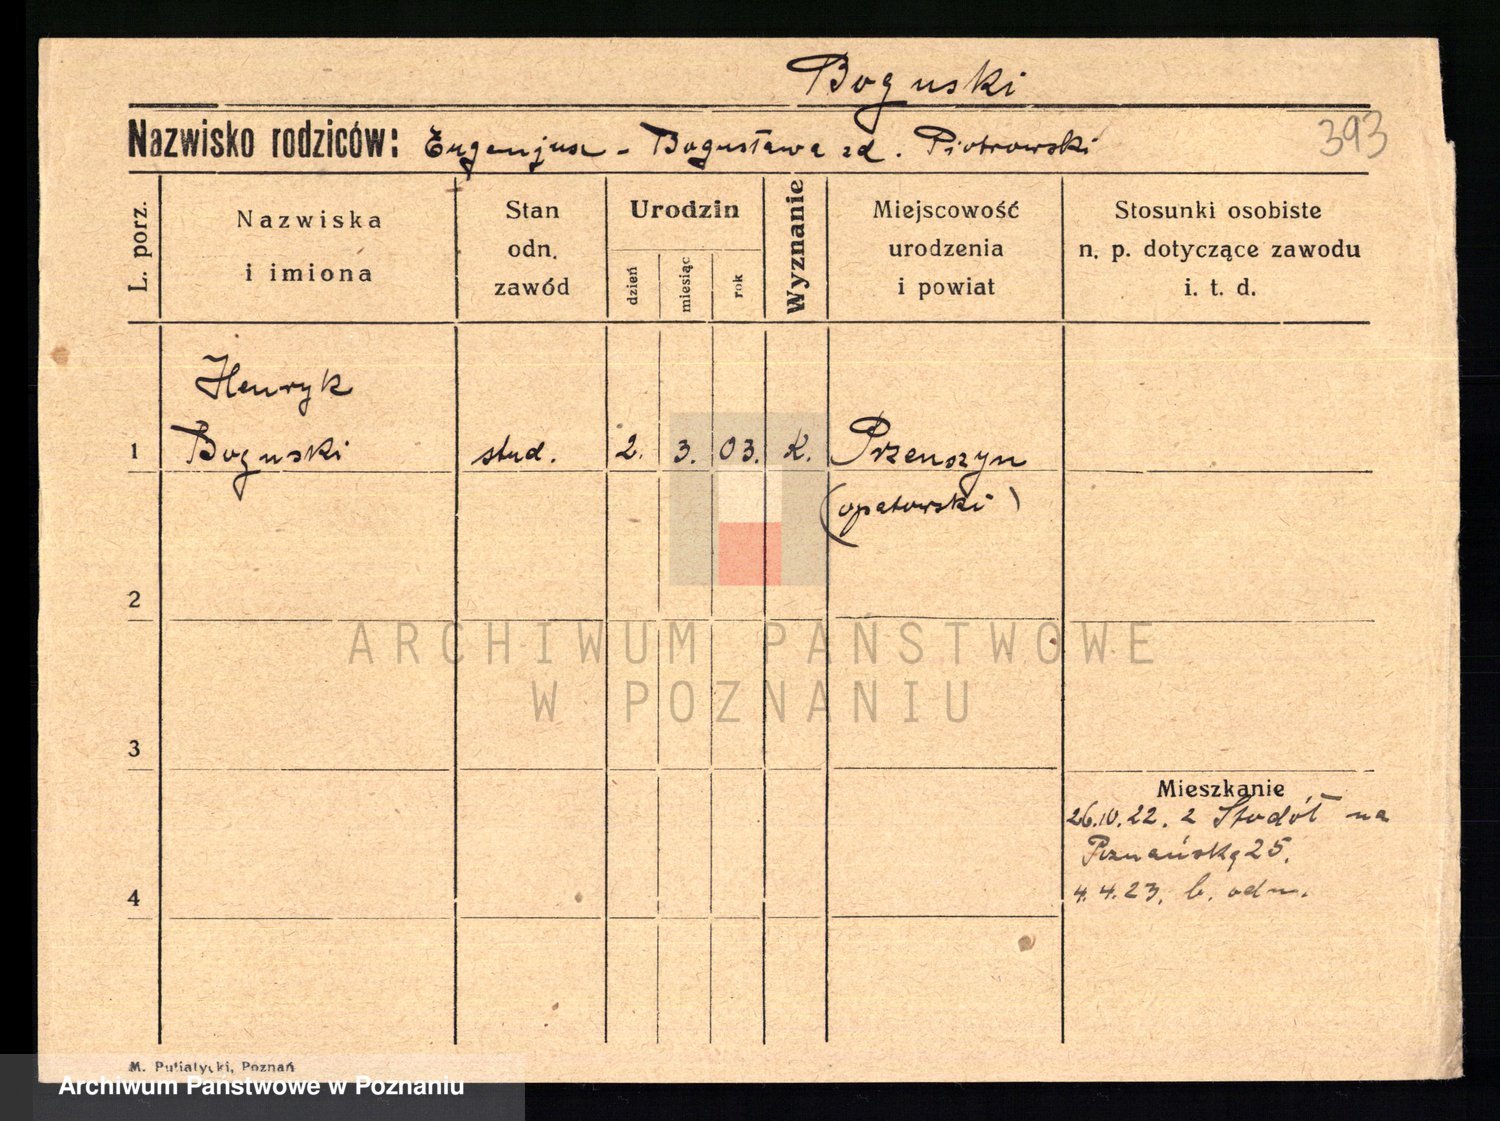 Boguski
Nazwisko rodziców: Eugenjusz - Bogusława zd. Piotrowski
393
L. porz.
Nazwiska
i imiona
Stan
odn.
zawód
Urodzin
dzień
miesiąc
rok
Wyznanie
Miejscowość
urodzenia
i powiat
Stosunki osobiste
n. p. dotyczące zawodu
i. t. d.
Henryk
1 Boguski stud. 2. 3. 03. K. Przeuszyn
(opatowski)
2
ARCHIWUM PAŃSTWOWE
W POZNANIU
3
Mieszkanie
26.10.22. z Stodół na
Poznańską 25.
4
4.4.23. b. odm.
M. Putiatycki, Poznań
Archiwum Państwowe w Poznaniu